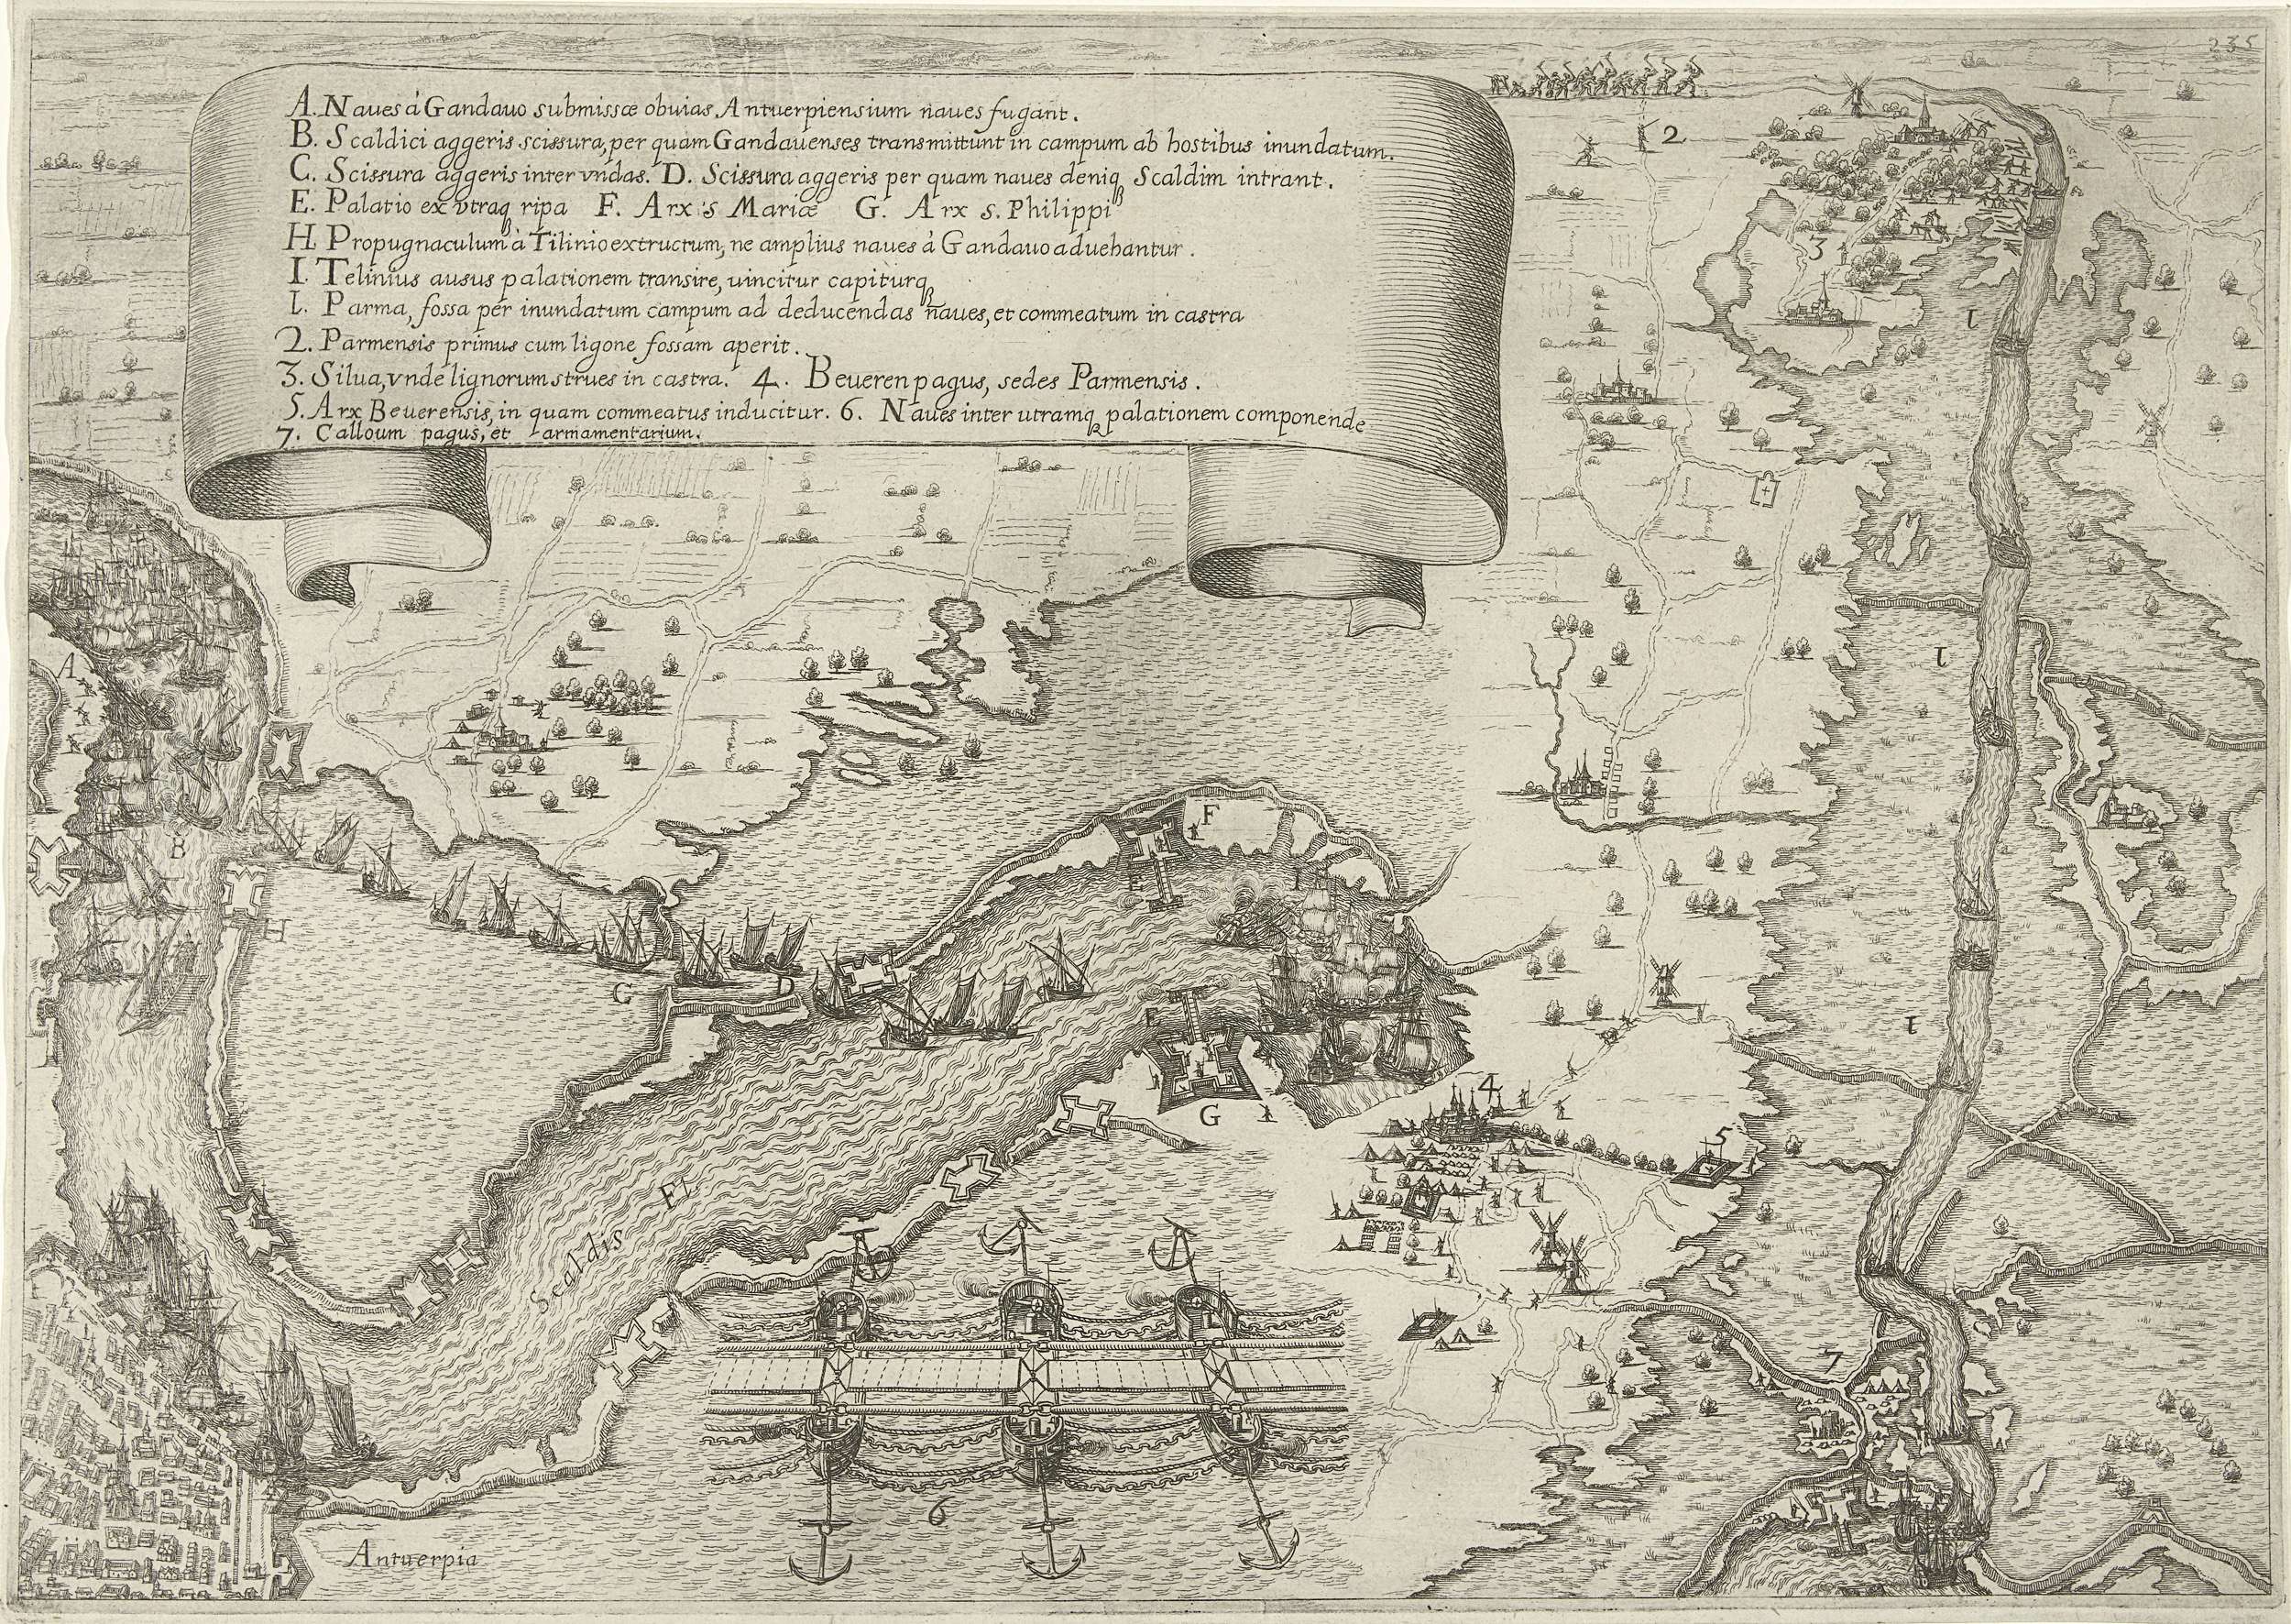 235
A. Naues à Gandauo submissæ obuias Antuerpiensium naues fugant.
B. Scaldici aggeris scissura, per quam Gandauenses transmittunt in campum ab hostibus inundatum.
C. Scissura aggeris inter vndas. D. Scissura aggeris per quam naues deniq Scaldim intrant.
E. Palatio ex vtraq ripa F. Arx s Mariæ G. Arx s. Philippi
H Propugnaculum à Tilinio extructum, ne amplius naues à Gandauo aduehantur.
I. Telinius ausus palationem transire, uincitur capiturq
l. Parma, fossa per inundatum campum ad deducendas naues, et commeatum in castra
2. Parmensis primus cum ligone fossam aperit.
3. Silua, vnde lignorum strues in castra. 4. Beueren pagus, sedes Parmensis.
5. Arx Beuerensis, in quam commeatus inducitur. 6. Naues inter utramq palationem componende
7. Calloum pagus, et armamentarium.
2
3
l
A
l
F
B
E
I
H
G
D
E
l
4
G
5
Scaldis Fl
7
6
Antuerpia